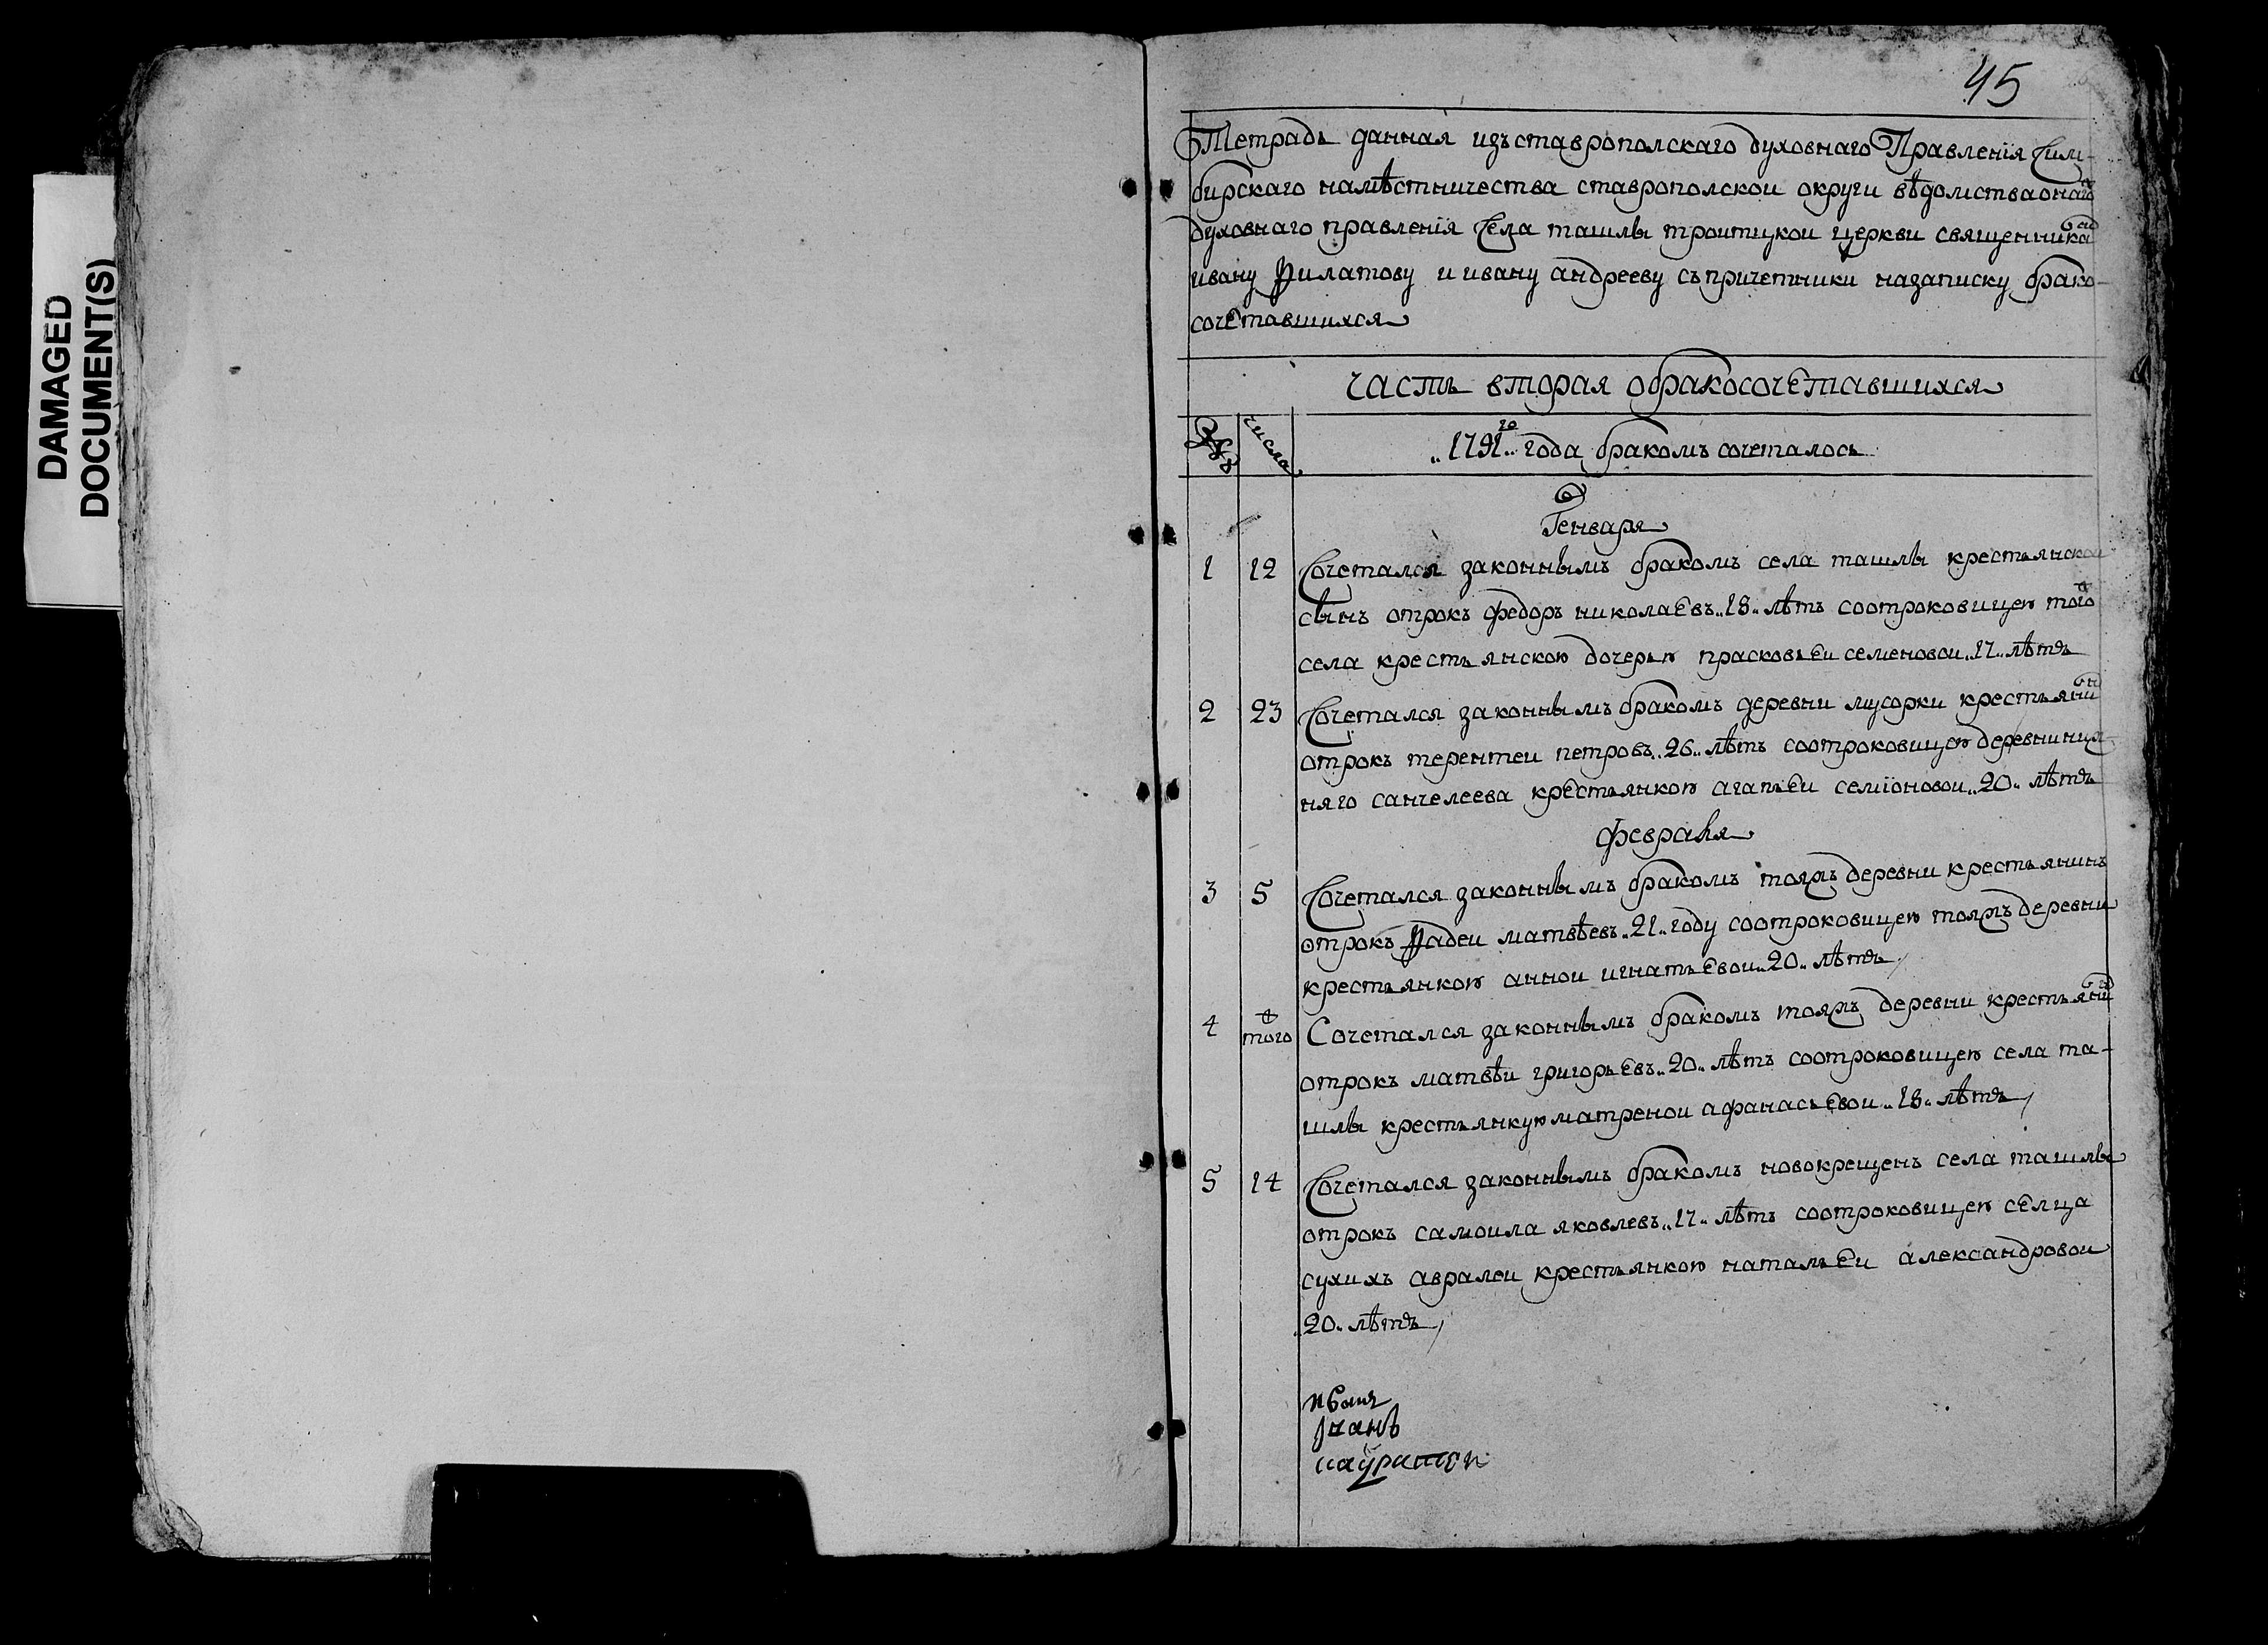 DAMAGED
DOCUMENT(S)
45
Тетрадь данная изъ ставрополскаго духовнаго Правленїя Сим-
бирскаго намѣстничества ставрополской округи вѣдомства онаго
духовнаго правленїя Села ташлы троитцкой церкви священникамъ
ивану Филатову и ивану андрееву съ причетники на записку брако-
сочетавшихся
часть вторая о бракосочетавшихся
числа
1791го года бракомъ сочеталось
Генваря
1 12 Сочетался законнымъ бракомъ села ташлы крестьянской
сынъ отрокъ федоръ николаевъ 18 лѣтъ соотроковицею того
села крестьянскою дочерью прасковьеи семеновои 17 лѣтъ
2 23 Сочетался законнымъ бракомъ деревни мусорки крестьянинъ
отрокъ терентеи петровъ 26 лѣтъ соотроковицею деревни ниж-
няго санчелеева крестьянкою агапьеи семїоновои 20 лѣтъ
февраля
3 5 Сочетался законнымъ бракомъ тояжъ деревни крестьянинъ
отрокъ Фадеи матвѣевъ 21 году соотроковицею тояжъ деревни
крестьянкою аннои игнатьевои 20 лѣтъ
4 того Сочетался законнымъ бракомъ тояжъ деревни крестьянинъ
отрокъ матвѣи григорьевъ 20 лѣтъ соотроковицею села та-
шлы крестьянкую матренои афанасьевои 18 лѣтъ
5 14 Сочетался законнымъ бракомъ новокрещенъ села ташлы
отрокъ самоила яковлевъ 17 лѣтъ соотроковицею селца
сухихъ авралеи крестьянкою натальеи александровои
20 лѣтъ